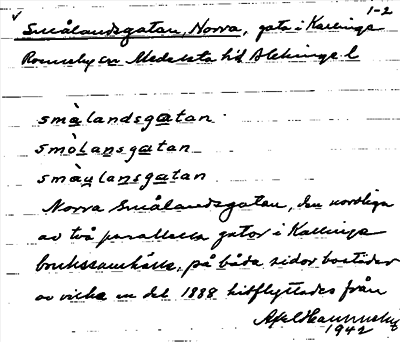 1-2
√ Smålandsgatan, Norra, gata i Kallinge
Ronneby sn Medelsta hd Blekinge l
småla̱ndsga̱tan
smòḻaṉsga̱tan
smàu̱ḻaṉsga̱tan
Norra Smålandsgatan, den nordliga
av två parallella gator i Kallinge
brukssamhälle, på båda sidor bostäder
av vilka en del 1888 hitflyttades från
Axel
1942